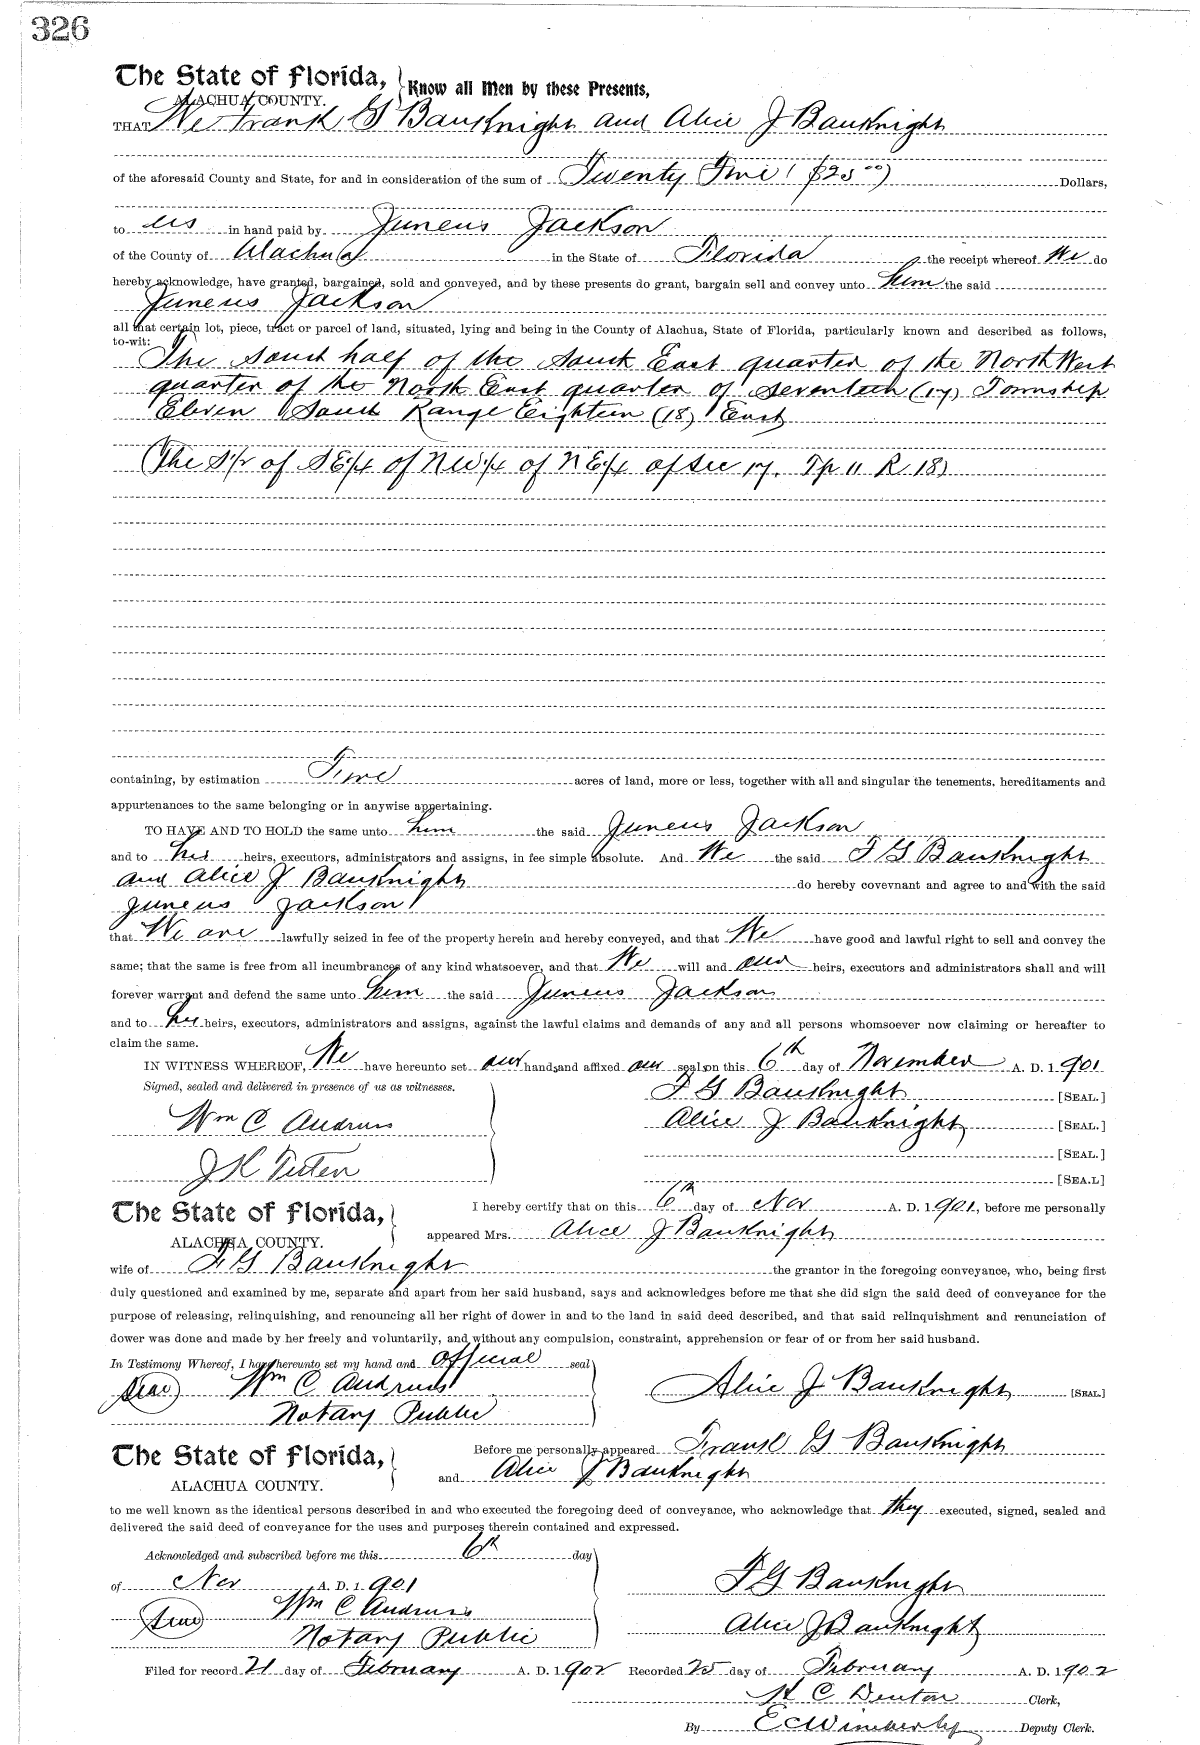 326
The State of Florida, Know all Men by these Presents,
ALACHUA COUNTY.
THAT We Frank G Bauknight and Alice J Bauknight
of the aforesaid County and State, for and in consideration of the sum of Twenty Five ($25 00) Dollars,
to us in hand paid by Juneus Jackson
of the County of Alachua in the State of Florida the receipt whereof We do
hereby acknowledge, have granted, bargained, sold and conveyed, and by these presents do grant, bargain sell and convey unto him the said
Juneus Jackson
all that certain lot, piece, tract or parcel of land, situated, lying and being in the County of Alachua, State of Florida, particularly known and described as follows,
to-wit:
The South half of the South East quarter of the North West
quarter of the North East quarter of Seventeen (17) Township
Eleven South Range Eighteen (18) East
(The S1/2 of SE1/4 of NW1/4 of NE1/4 of Sec 17. Tp 11 R 18)
containing, by estimation Five acres of land, more or less, together with all and singular the tenements, hereditaments and
appurtenances to the same belonging or in anywise appertaining.
TO HAVE AND TO HOLD the same unto him the said Juneus Jackson
and to his heirs, executors, administrators and assigns, in fee simple absolute. And We the said F G Bauknight
and Alice J Bauknight do hereby covevnant and agree to and with the said
Juneus Jackson
that We are lawfully seized in fee of the property herein and hereby conveyed, and that We have good and lawful right to sell and convey the
same; that the same is free from all incumbrances of any kind whatsoever, and that We will and our heirs, executors and administrators shall and will
forever warrant and defend the same unto him the said Juneus Jackson
and to his heirs, executors, administrators and assigns, against the lawful claims and demands of any and all persons whomsoever now claiming or hereafter to
claim the same.
IN WITNESS WHEREOF, We have hereunto set our hands and affixed our seal on this 6th day of November A. D. 1901
Signed, sealed and delivered in presence of us as witnesses. F G Bauknight [SEAL.]
Wm C Andruss Alice J Bauknight [SEAL.]
[SEAL.]
J K Tuten [SEA.L]
The State of Florida, I hereby certify that on this 6th day of Nov A. D. 1901, before me personally
ALACHUA COUNTY. appeared Mrs. Alice J Bauknight
wife of F G Bauknight the grantor in the foregoing conveyance, who, being first
duly questioned and examined by me, separate and apart from her said husband, says and acknowledges before me that she did sign the said deed of conveyance for the
purpose of releasing, relinquishing, and renouncing all her right of dower in and to the land in said deed described, and that said relinquishment and renunciation of
dower was done and made by her freely and voluntarily, and without any compulsion, constraint, apprehension or fear of or from her said husband.
In Testimony Whereof, I have hereunto set my hand and Official seal
(Seal) Wm C Andruss Alice J Bauknight [SEAL.]
Notary Public
The State of Florida, Before me personally appeared Frank G Bauknight
ALACHUA COUNTY. and Alice J Bauknight
to me well known as the identical persons described in and who executed the foregoing deed of conveyance, who acknowledge that they executed, signed, sealed and
delivered the said deed of conveyance for the uses and purposes therein contained and expressed.
Acknowledged and subscribed before me this 6th day
of Nov A. D. 1901 F G Bauknight
(Seal) Wm C Andruss Alice J Bauknight
Notary Public
Filed for record 21 day of February A. D. 1902 Recorded 25 day of February A. D. 1902
H C Denton Clerk,
By E C Wimberly Deputy Clerk.